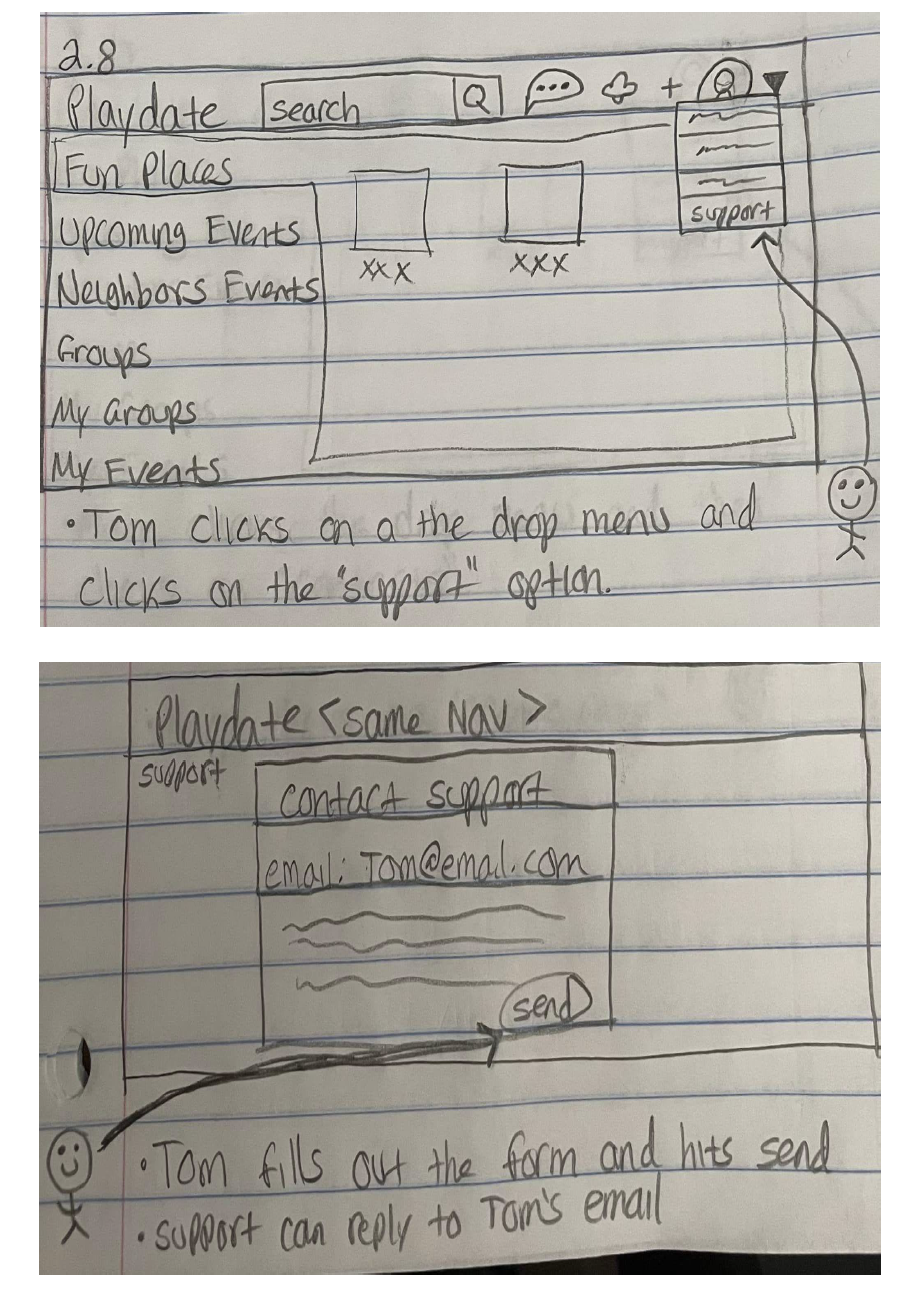 2.8
Playdate search + 
Fun Places
Upcoming Events
Neighbors Events
Groups
My Groups
My Events
xxx xxx
support
• Tom clicks on a the drop menu and
clicks on the "support" option.
Playdate <same Nav>
support
contact support
email: Tom@email.com
send
• Tom fills out the form and hits send
• support can reply to Tom's email